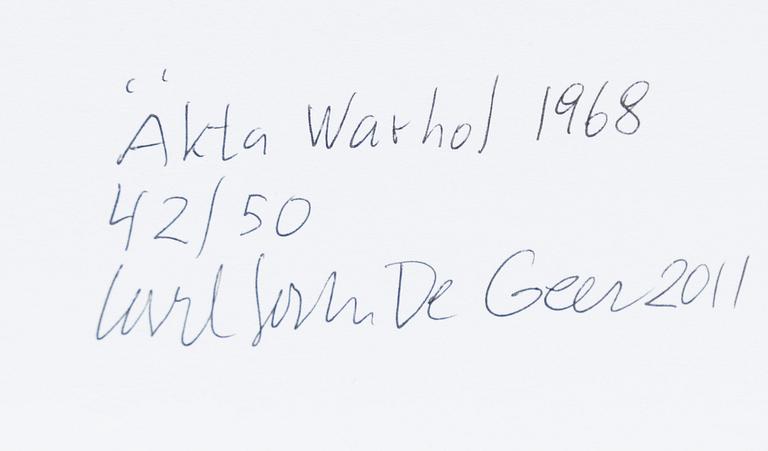 Äkta Warhol 1968
42/50
Carl Johan De Geer 2011